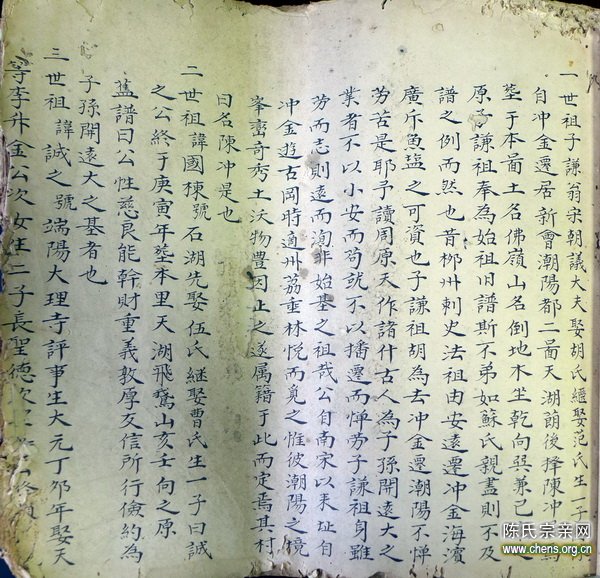 一世祖子謙翁宋朝議大夫娶胡氏繼娶范氏生一子
自冲金遷居新會潮陽都二啚天湖蓢後擇陳冲
塟于本啚土名佛嶺山名倒地木坐乾向巽兼已
原子謙祖奉為始祖旧譜斯不弟如蘇氏親盡則不及
譜之例而然也昔柳州刺史法祖由安遠遷冲金海濱
廣斥魚塩之可資也子謙祖胡為去冲金遷潮陽不惮
劳苦是耶予讀周原天作諸什古人為子孫開遠大之
業者不以小安而苟就不以播遷而惮劳子謙祖身雖
劳而志則遠而洵非始基之祖哉公自南宋以来址自
冲金逰古岡時適州荔垂林悦而覓之惟彼潮陽之境
峯巒奇秀土沃物豐因止之遂属籍于此而定焉其村
曰名陳冲是也
二世祖諱國棟號石湖先娶伍氏継娶曹氏生一子曰誠
之公終于庚寅年塟本里天湖飛鵞山亥壬向之原
蓝譜曰公性慈良能幹財重義敦厚友信所行儉約為
子孫開遠大之基者也
三世祖諱誠之號端陽大理寺評事生大元丁夘年娶天
等李升金公次女生二子長聖德次
陈氏宗亲网
www.chens.org.cn